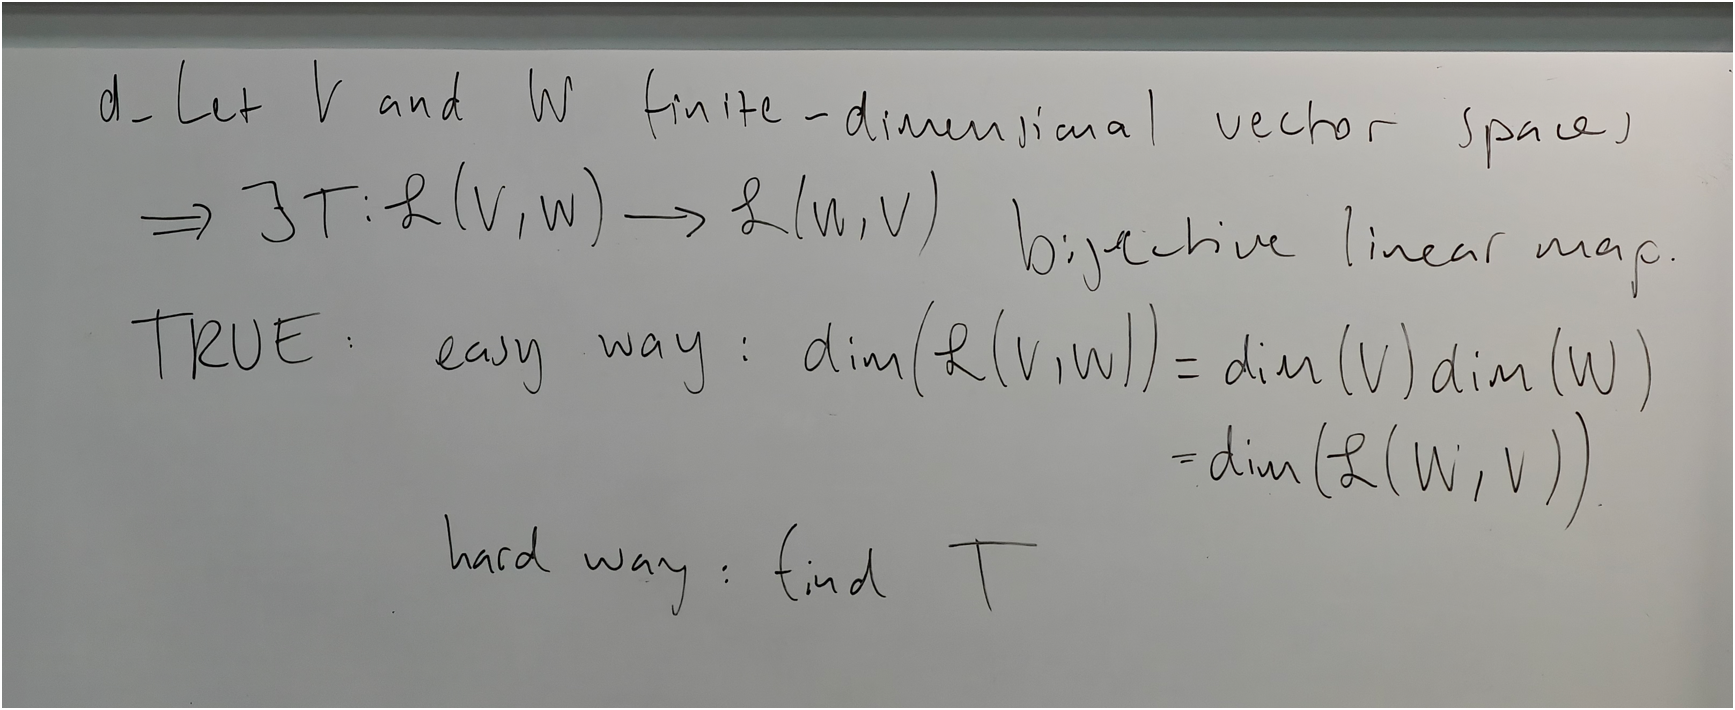 d- Let V and W finite-dimensional vector spaces
⇒ ∃T: ℒ(V,W) → ℒ(W,V) bijective linear map.
TRUE: easy way: dim(ℒ(V,W)) = dim(V)dim(W)
= dim(ℒ(W,V)).
hard way: find T